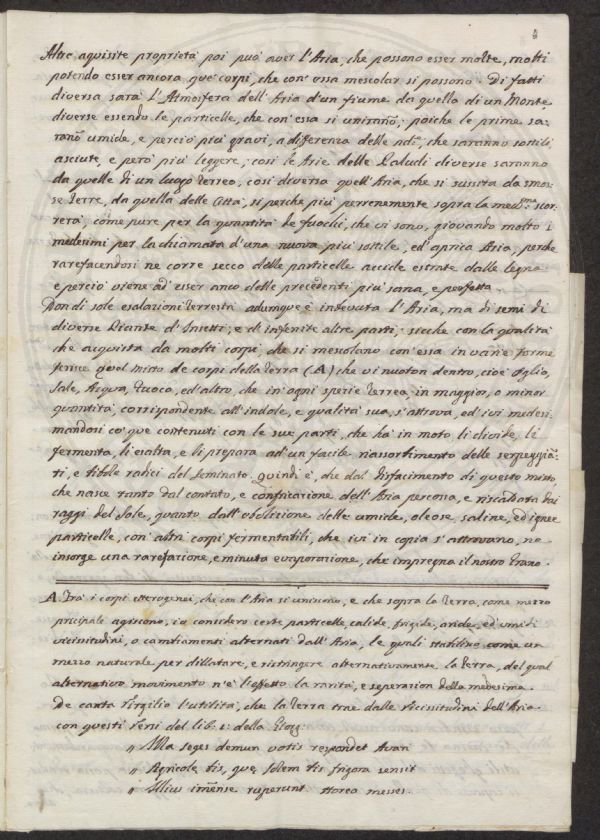 Altre aquisite proprietà poi può aver l'Aria, che possono esser molte, molti
potendo esser ancora que' corpi, che con' essa mescolar si possono. Di fatti
diversa sarà l'Atmosfera dell'Aria d'un fiume da quella di un Monte
diverse essendo le particelle, che con' essa si uniranno; poiche le prime sa-
rano umide, e perciò più gravi, a differenza delle che saranno sottili,
asciute, e però più leggere; così le Arie delle Paludi diverse saranno
da quelle di un luogo terreo, così diversa quell'Aria, che si suscita da smos-
se terre, da quella delle Città, si perche più perenemente sopra la med.ma scor-
rerà, come pure per la quantità de fuochi, che vi sono, giovando molto i
medesimi per la chiamata d'una nuova più sottile, ed' aprica Aria, perche
rarefacendosi ne corre secco delle particelle accide estrate dalle legna
e perciò viene ad' esser anco delle precedenti più sana, e perfetta.
Non di sole esalazioni terrestri adunque è intevuta l'Aria, ma di semi di
diverse Piante d'Insetti; e d'infinite altre parti; sicche con la qualità
che acquista da molti corpi, che si mescolano con' essa in varie forme
ferisce quel misto de corpi della Terra (A) che vi nuoton dentro, cioè Oglio,
Sale, Acqua, Fuoco, ed' altro, che in' ogni sperie terrea in maggior, o minor
quantità, corrispondente all'indole, e qualità sua, s'attrova, ed ivi medesi-
mandosi co' que contenuti con le sue parti, che ha in moto, li divide, li
fermenta, li esalta, e li prepara ad' un facile riassortimento delle serpeggian-
ti, e titole radici del seminato. Quindi è, che dal disfacimento di questo misto,
che nasce tanto dal contato, e conficazione dell'Aria percossa, e riscaldata dai
raggi del Sole, quanto dall'obolizione delle umide, oleose, saline, ed ignee
particelle, con' altri corpi fermentabili, che ivi in copia s'attrovano, ne
insorge una rarefazione, e minuta evaporazione, che impregna il nostro Grano.
A Trà i corpi eterogenei, che con l'Aria si uniscono, e che sopra la Terra, come mezzo
principale agiscono, io considero certe particelle, calide, frigide, aride, ed umidi
vicissitudini, o cambiamenti alternati dall'Aria, le quali stabilisco come un
mezzo naturale per dillatare, e ristringere alternativamente la terra, del qual
alternativo movimento n'è l'effetto la rarità, e seperazion della medesima.
De canta Virgilio l'utilità, che la Terra trae dalle vicissitudini dell'Aria
con questi versi del lib. 1: della Georg:
" Illa seges demun votis respondet Avari
" Agricole bis, que solem bis frigora sensit
" Illius imense ruperunt horea messes.